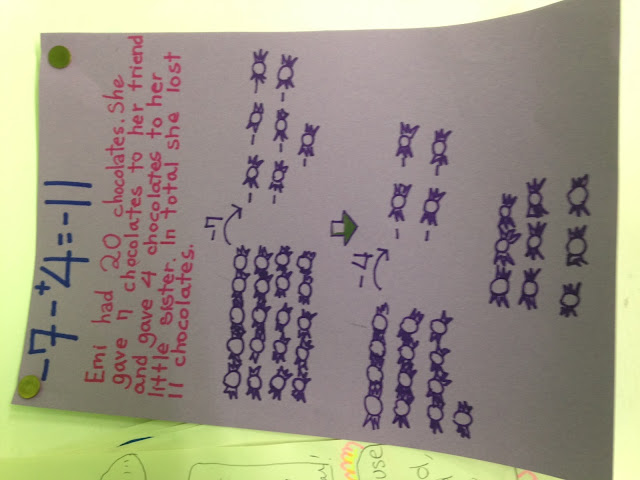 -7-⁺4=-11
Emi had 20 chocolates. She
gave 7 chocolates to her friend
and gave 4 chocolates to her
little sister. In total she lost
11 chocolates.
-7
-4
use